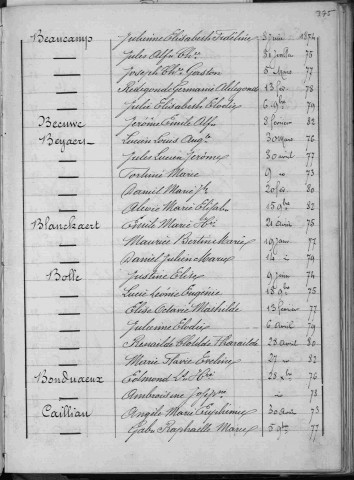 375
Beaucamp Julienne Elisabeth Fideline 8 juin 1874
— Jules Alf. Chs. 31 juillet 75
— Joseph Chs. Gaston 5 77
— Radegonde Germaine Aldegonde 13 fév. 78
— Julie Elisabeth Elodie 6 9bre 79
Becuwe Jérôme Emile Alf. 2 février 82
Beyaert Lucien Louis Aug. 30 mars 76
— Jules Lucien Jérôme 30 avril 77
— Marie 9 73
— Daniel Marie Jh 20 fév. 80
— Marie Elisab. 15 8bre 82
Blanckaert Cécile Marie Hi 21 avril 75
— Maurice Bertin Marie 19 77
— Daniel Julien Marie 14 79
Bolle Justine Elise 9 74
— Lucie Léonie Eugénie 15 75
— Elise Octavie Mathilde 13 février 77
— Julienne Elodie 6 avril 79
— Clotilde 28 avril 80
— Marie Flavie Eveline 27 82
Bonduaeux Edmond Ls Hri 28 76
— Ambroisine 78
Cailliau Angèle Marie Euphémie 30 avril 73
— Gab. Raphaëlle Marie 5 77